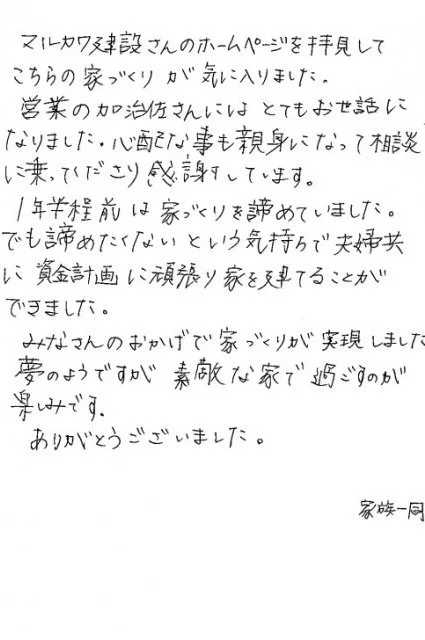 マルカワ建設さんのホームページを拝見して
こちらの家づくりが気に入りました。
営業の加治佐さんには とてもお世話に
なりました。心配な事も親身になって相談
に乗ってくださり感謝しています。
1年半程前は家づくりを諦めていました。
でも諦めたくないという気持ちで夫婦共
に資金計画に頑張り家を建てることが
できました。
みなさんのおかげで家づくりが実現しました
夢のようですが 素敵な家で過ごすのが
楽しみです。
ありがとうございました。
家族一同